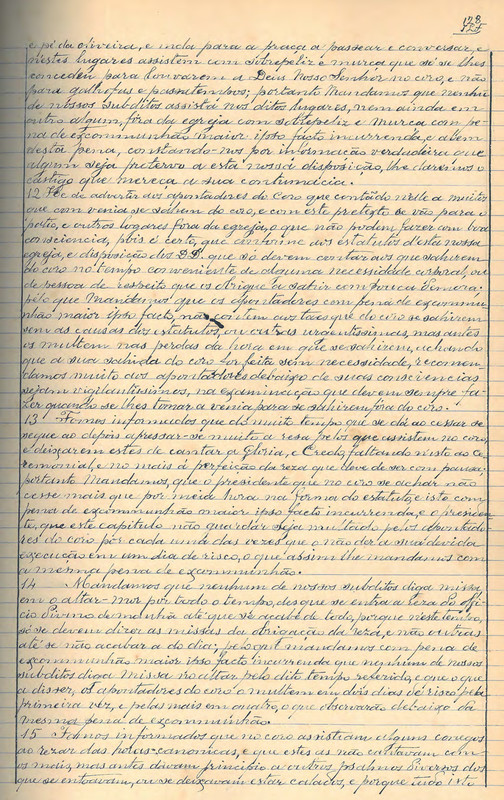 128
e pé da oliveira, e inda para a praça a passear e conversar, e
nestes lugares assistem com sobrepeliz e murça que só se lhes
concedeu para louvarem a Deus Nosso Senhor no coro, e não
para galhofas e passatempos; portanto Mandamos que nenhum
de nossos subditos assista nos ditos lugares, nem ainda em
outro algum, fóra da egreja com sobrepeliz e murça com pe-
na de excommunhão maior ipso facto incurrenda, e alem
desta pena, constando-nos por informação verdadeira que
algum seja protervo a esta nossa disposição, lhe daremos o
castigo que mereça a sua contumácia.
12 Se de advertir aos apontadores do Coro que contão nelle a muitos
que com venia se sahem do coro, e com este pretexto se vão para o
patio, e outros logares fóra da egreja, o que não podem fazer com boa
consciencia, pois é certo, que conforme aos estatutos d'esta nossa
egreja, e disposição dos D.D. que só devem contar aos que sahirem
do coro no tempo conveniente de alguma necessidade corporal, ou
de pessoa de respeito que os obrigue a sahir com pouca demora:
pelo que Mandamos que os apontadores com pena de excommu-
nhão maior ipso facto, não contem aos taes que do coro se sahirem
sem as causas dos estatutos, ou outras urgentissimas, mas antes
os multem nas perdas da hora em que se sahirem, achando
que a sua sahida do coro for feita sem necessidade, recomen-
damos muito aos apontadores debaixo de suas consciencias
sejam vigilantissimos, na examinação que devem sempre fa-
zer quando se lhes tornar a venia para se sahirem fóra do coro.
13 Fomos informados que há muito tempo que se dá ao cessar se
segue ao depois apressar-se muito a resa pelos que assistem no coro,
e deixarem estes de cantar a Gloria, e Credo, faltando nisto ao Ce-
remonial, e no mais á perfeição da reza que deve de ser com pausa;
portanto Mandamos, que o presidente que no coro se achar não
cesse mais que por meia hora na forma do estatuto, e isto com
pena de excommunhão maior ipso facto incurrenda, e o presiden-
te, que este capitulo não guardar seja multado pelos apontado-
res do coro por cada uma das vezes que o não der a sua devida
execução em um dia de risco, o que assim lhe mandamos com
a mesma pena de excommunhão.
14 Mandamos que nenhum de nossos subditos diga missa
em o altar-mor por todo o tempo, des que se entra a reza do Offi-
cio Divino de manhã até que se acabe de todo, porque neste tempo,
só se devem dizer as missas da obrigação da reza, e não outras
até se não acabar a do dia; pelo que mandamos com pena de
excommunhão maior ipso facto incurrenda que nenhum de nossos
subditos diga Missa no altar pelo dito tempo referido, e ao que
a disser, os apontadores do coro o multem em dois dias de risco pela
primeira vez, e pelas mais em quatro, o que observarão debaixo da
mesma pena de excommunhão.
15 Fomos informados que no coro assistiam alguns conegos
ao rezar das horas-canonicas, e que estes as não cantavam com
os mais, mas antes davam principio a outros psalmos diversos dos
que se entoavam, ou se deixavam estar calados, e porque tudo isto